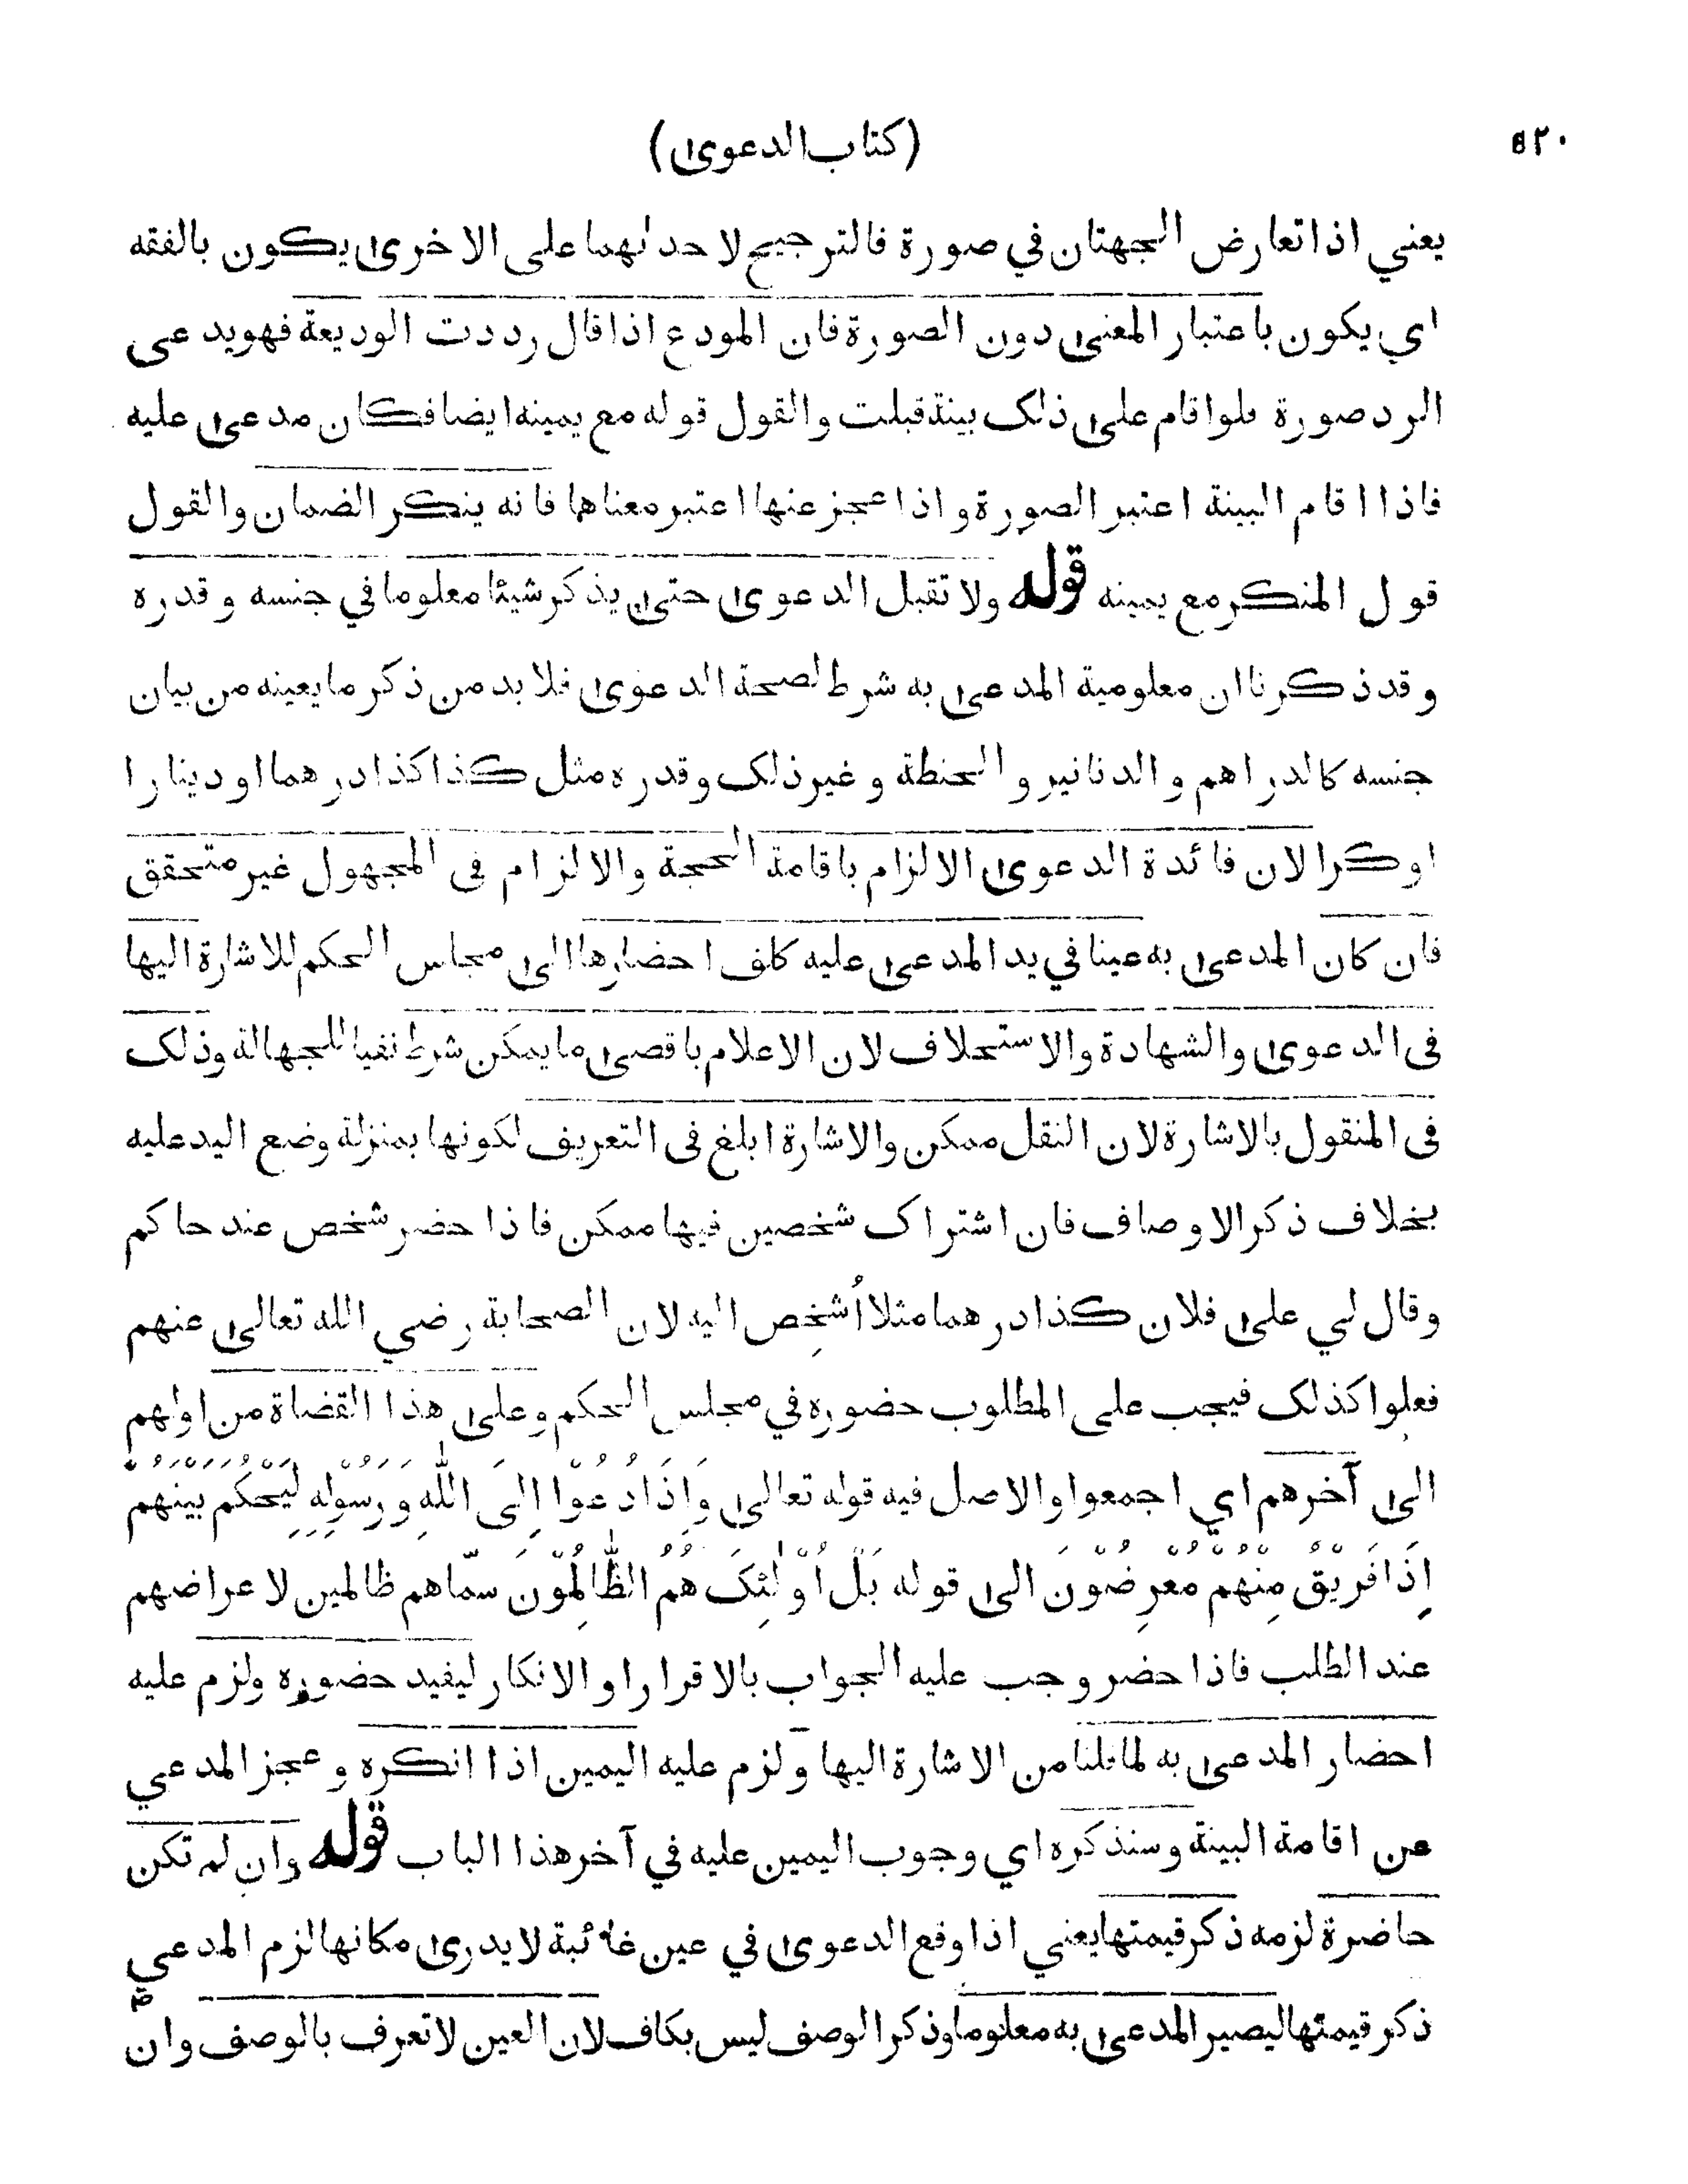 ٥٢٠
(كتاب الدعوى)
يعني اذا تعارض الجهتان في صورة فالترجيح لاحدٰهما على الاخرى يكون بالفقه
اي يكون باعتبار المعنى دون الصورة فان المودع اذا قال رددت الوديعة فهو يدعى
الرد صورة فلو اقام على ذلك بينة قبلت والقول قوله مع يمينه ايضا فكان مدعى عليه
فاذا اقام البينة اعتبر الصورة و اذا عجز عنها اعتبر معناها فانه ينكر الضمان والقول
قول المنكر مع يمينه قوله ولا تقبل الدعوى حتى يذكر شيئا معلوما في جنسه و قدره
و قد ذكرنا ان معلومية المدعى به شرط لصحة الدعوى فلا بد من ذكر ما يعينه من بيان
جنسه كالدراهم و الدنانير و الحنطة و غير ذلك وقدره مثل كذا كذا درهما او دينارا
او كرا لان فائدة الدعوى الالزام باقامة الحجة والالزام فى المجهول غير متحقق
فان كان المدعى به عينا في يد المدعى عليه كلف احضارها الى مجلس الحكم للاشارة اليها
فى الدعوى والشهادة والاستحلاف لان الاعلام باقصى ما يمكن شرط نفيا للجهالة وذلك
فى المنقول بالاشارة لان النقل ممكن والاشارة ابلغ فى التعريف لكونها بمنزلة وضع اليد عليه
بخلاف ذكر الاوصاف فان اشتراك شخصين فيها ممكن فاذا حضر شخص عند حاكم
وقال لي على فلان كذا درهما مثلا اُشخِص اليه لان الصحابة رضي الله تعالى عنهم
فعلوا كذلك فيجب على المطلوب حضوره في مجلس الحكم وعلى هذا القضاة من اولهم
الى آخرهم اي اجمعوا والاصل فيه قوله تعالى وَاِذَا دُعُوْا اِلَى اللّٰهِ وَ رَسُوْلِهٖ لِيَحْكُمَ بَيْنَهُمْ
اِذَا فَرِيْقٌ مِنْهُمْ مُعْرِضُوْنَ الى قوله بَلْ اُوْلٰئِكَ هُمُ الظّٰالِمُوْنَ سمّاهم ظالمين لاعراضهم
عند الطلب فاذا حضر وجب عليه الجواب بالاقرار او الانكار ليفيد حضوره ولزم عليه
احضار المدعى به لما قلنا من الاشارة اليها ولزم عليه اليمين اذا انكره و عجز المدعي
عن اقامة البينة وسنذكره اي وجوب اليمين عليه في آخر هذا الباب قوله وان لم تكن
حاضرة لزمه ذكر قيمتها يعني اذا وقع الدعوى في عين غائبة لا يدرى مكانها لزم المدعي
ذكر قيمتها ليصير المدعى به معلوما وذكر الوصف ليس بكاف لان العين لا تعرف بالوصف وان